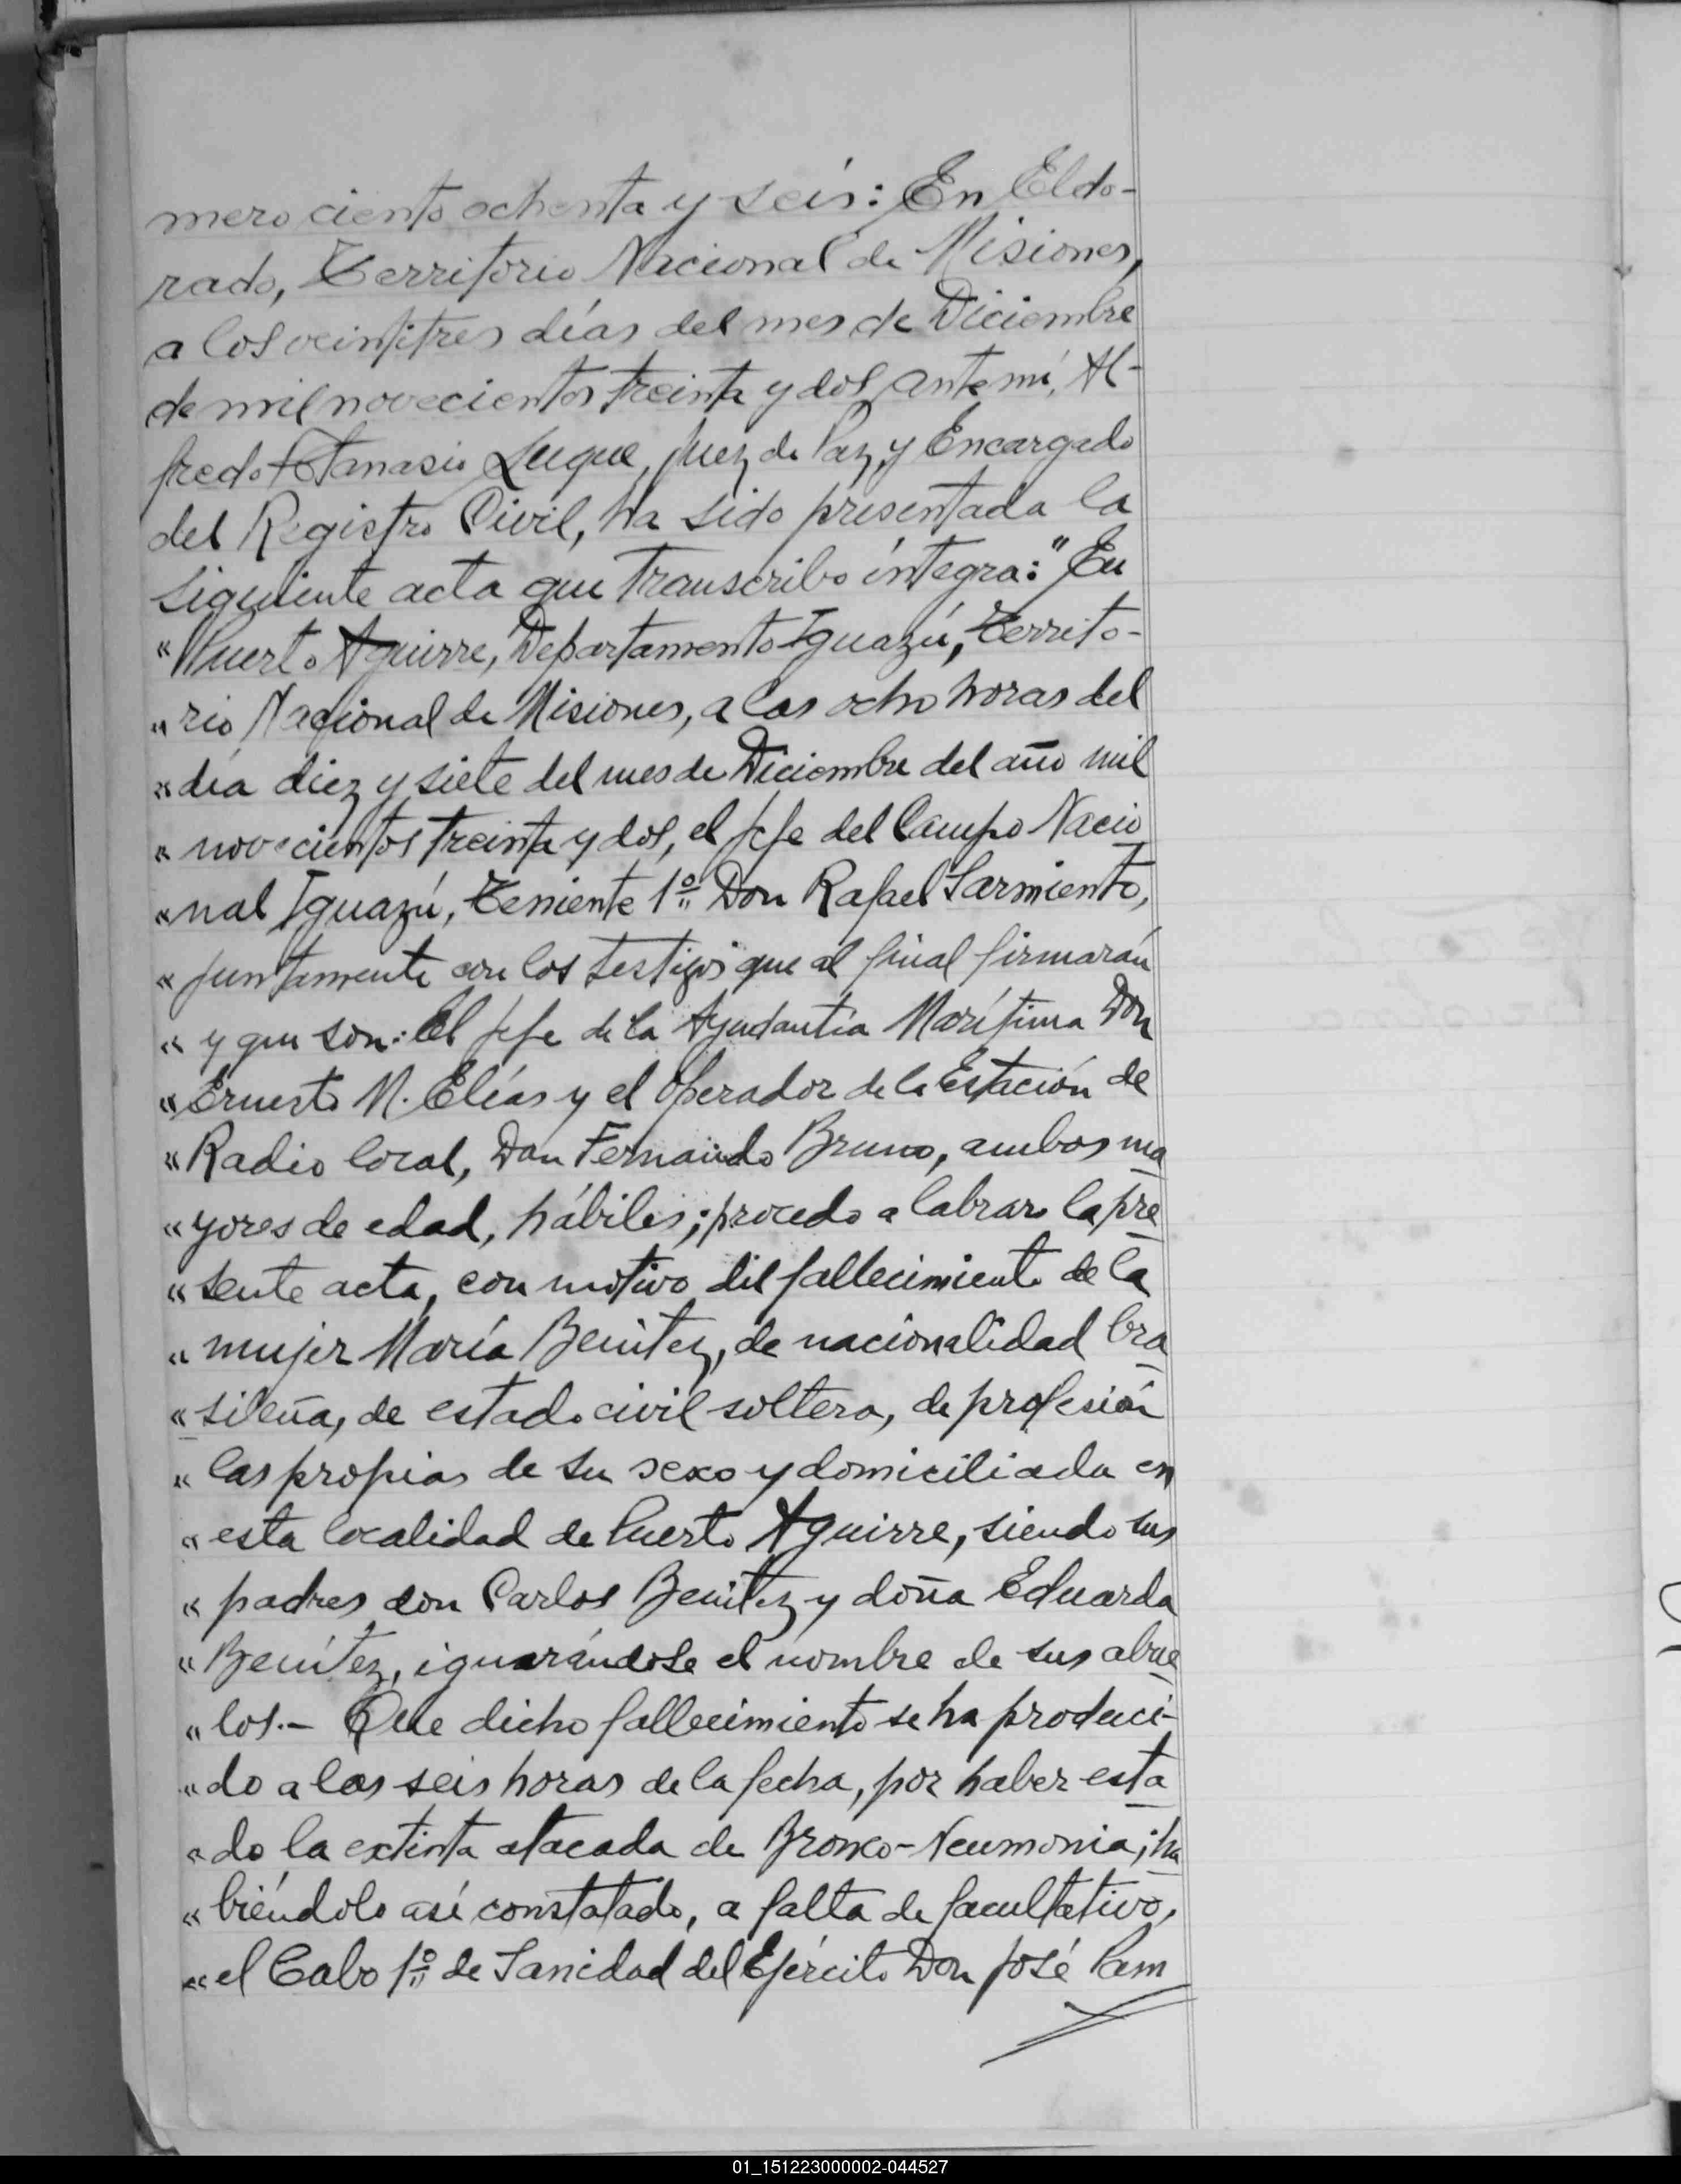 mero ciento ochenta y seis: En Eldo-
rado, Territorio Nacional de Misiones,
a los veintitres días del mes de Diciembre
de mil novecientos treinta y dos, ante mí, Al-
fredo Atanasio Luque, Juez de Paz, y Encargado
del Registro Civil, ha sido presentada la
siguiente acta que transcribo íntegra: "En
"Puerto Aguirre, Departamento Iguazú, Territo-
"rio Nacional de Misiones, a las ocho horas del
"día diez y siete del mes de Diciembre del año mil
"novecientos treinta y dos, el Jefe del Campo Nacio
"nal Iguazú, Teniente 1º Don Rafael Sarmiento,
"juntamente con los testigos que al final firmarán
"y que son: el Jefe de la Ayudantía Marítima Don
"Ernesto M. Elías y el Operador de la Estación de
"Radio local, Don Fernando Bruno, ambos ma
"yores de edad, hábiles; procedo a labrar la pre
"sente acta, con motivo del fallecimiento de la
"mujer María Benítez, de nacionalidad bra
"sileña, de estado civil soltera, de profesión
"las propias de su sexo y domiciliada en
"esta localidad de Puerto Aguirre, siendo sus
"padres don Carlos Benítez y doña Eduarda
"Benítez, ignorándose el nombre de sus abue
"los.- Que dicho fallecimiento se ha produci-
"do a las seis horas de la fecha, por haber esta
"do la extinta atacada de Bronco-Neumonia; ha
"biéndolo así constatado, a falta de facultativo,
"el Cabo 1º de Sanidad del Ejército Don José Cam
01_151223000002-044527